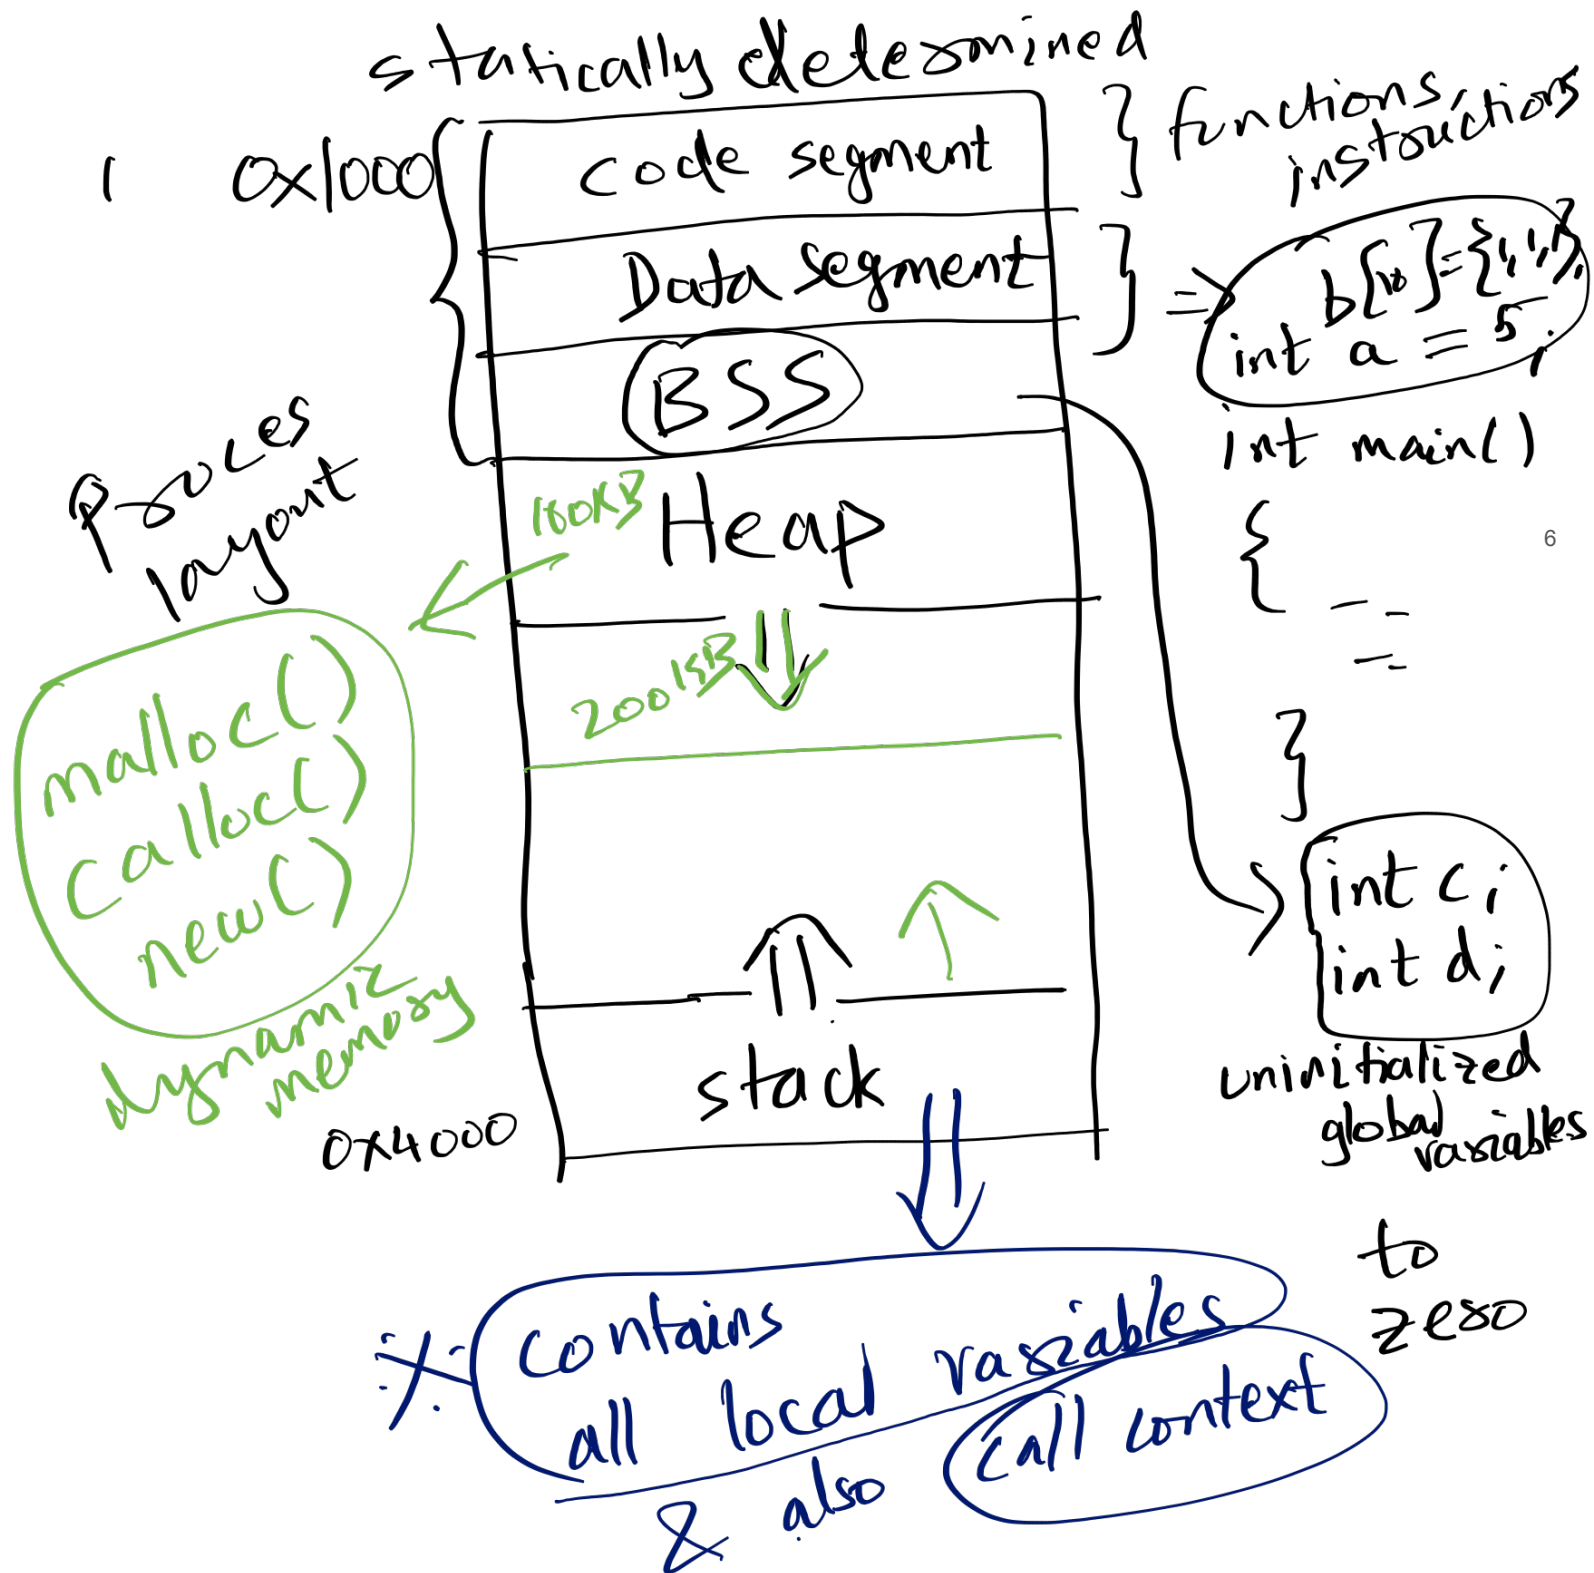 statically determined
0x1000
code segment
} functions,
instructions
Data segment
} ⇒
b[10]={1,1,1};
int a = 5;
BSS
int main()
{
6
}
Proces
layout
100KB
Heap
200KB
malloc()
calloc()
new()
dynamic
memory
int c;
int d;
uninitialized
global
variables
to
zero
stack
0x4000
contains
all local variables
& also call context